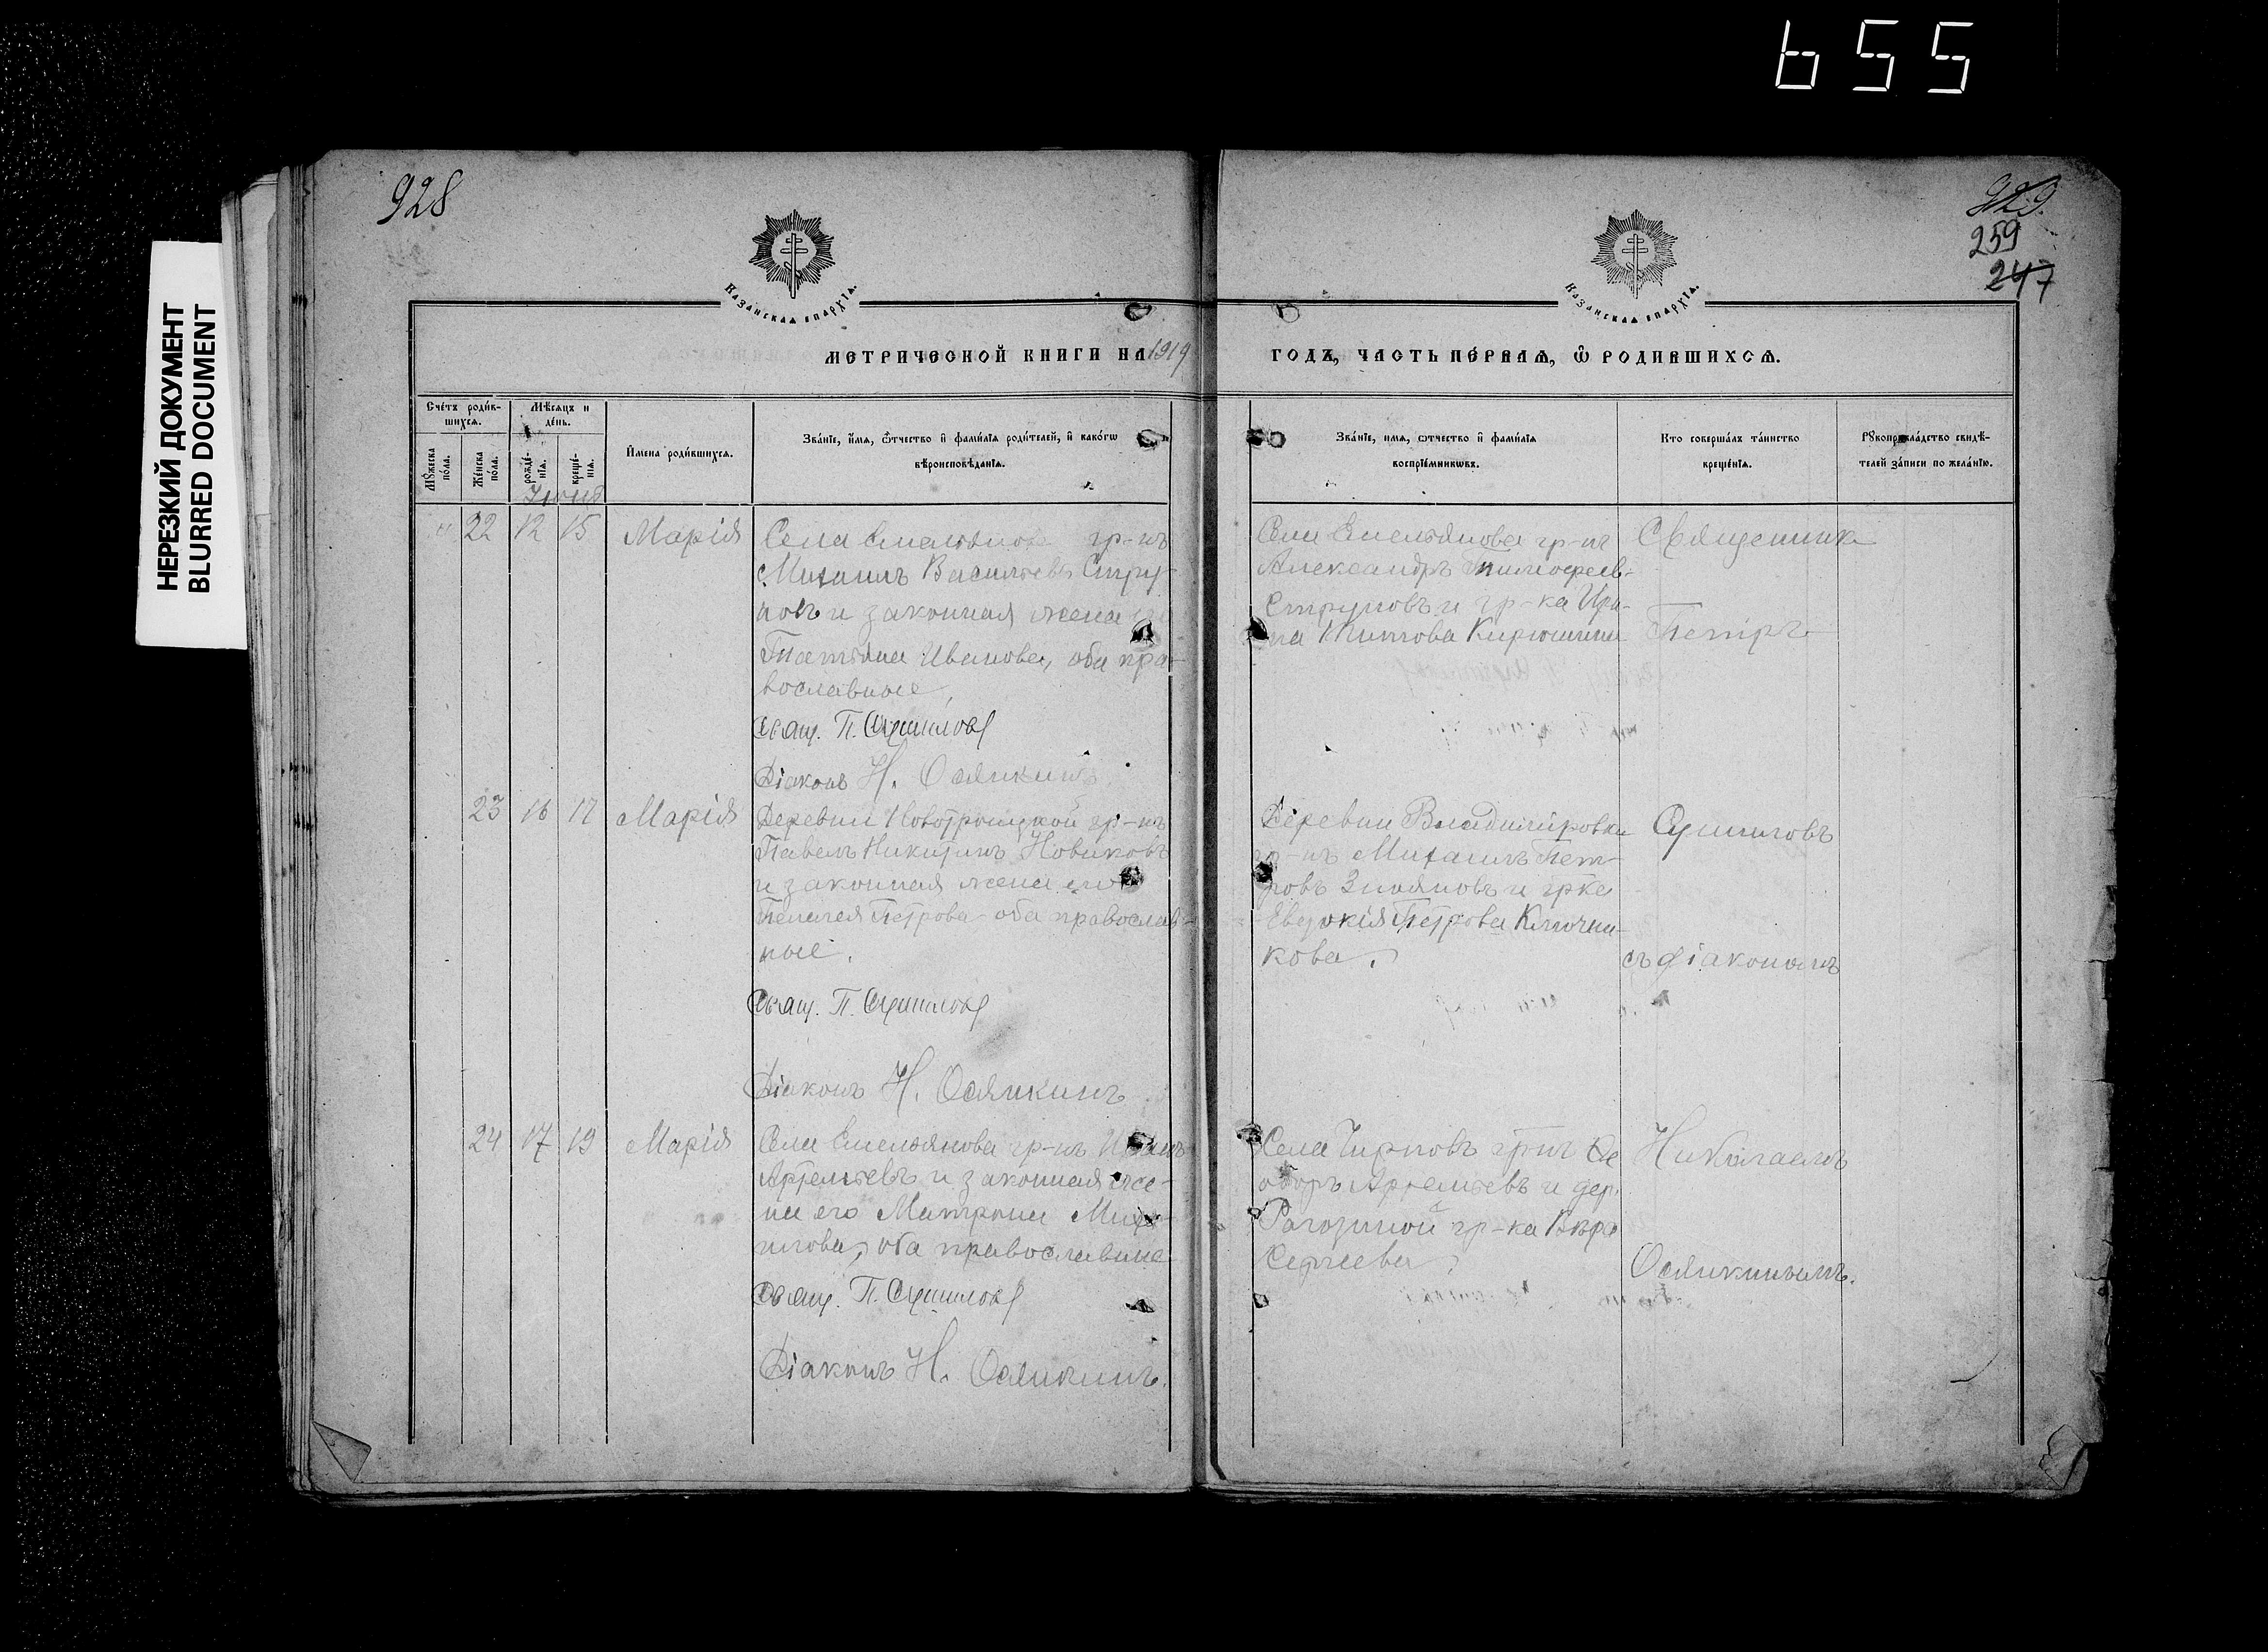 655
НЕРЕЗКИЙ ДОКУМЕНТ
BLURRED DOCUMENT
928
929
259
247
Казанская епархїѧ.
Казанская епархїѧ.
МЕТРИЧЕСКОЙ КНИГИ НА 1919
ГОДЪ, ЧАСТЬ ПЕ́РВАѦ, Ѿ РОДИВШИХСѦ.
Сче́тъ роди́в-
шихсѧ.
Мѣ́сѧцъ и
де́нь.
Мꙋ́жеска
по́ла.
Же́нска
по́ла.
рожде́-
нїѧ.
креще́-
нїѧ.
И҆мена роди́вшихсѧ.
Зва́нїе, и҆́мѧ, ѻ҆́тчество и҆ фами́лїѧ роди́телей, и҆ како́гѡ
вѣроисповѣ́данїѧ.
Зва́нїе, имѧ, ѻтчество и҆ фами́лїѧ
воспрїе́мниковъ.
Кто соверша́лъ та́инство
креще́нїѧ.
Рꙋкоприкла́дство свидѣ́-
телей за́писи по жела́нїю.
Іюнь
" 22 12 15 Марія
Села Емельянова гр-нъ
Михаилъ Васильевъ Стру-
новъ и законная жена
Татьяна Иванова, оба пра-
вославные,
Свящ. П. Сушиловъ
Діаконъ Н. Осянкинъ.
Села Емельянова гр-нъ
Александръ Тимофеев-
Струновъ и гр-ка Ири-
на Кирюшина
Священникъ
Петръ
23 16 17 Марія
Деревни Новотроицкой гр-нъ
Павелъ Никитинъ Новиковъ
и законная жена его
Пелагея Петрова оба православ-
ные.
Свящ. П. Сушиловъ
Діаконъ Н. Осянкинъ
Деревни Владимировки
гр-нъ Михаилъ Пет-
ровъ и гр-ка
Евдокія Петрова Ключни-
кова.
Сушиловъ
съ діакономъ
24 17 19 Марія
Села Емельянова гр-нъ Иванъ
Артемьевъ и законная же-
на его Матрона Михай-
лова, оба православные
Свящ. П. Сушиловъ
Діаконъ Н. Осянкинъ.
Села гр-нъ Ѳе
одоръ Артемьевъ и дер.
Рагозиной гр-ка Вѣра
Сергеева.
Николаемъ
Осянкинымъ.